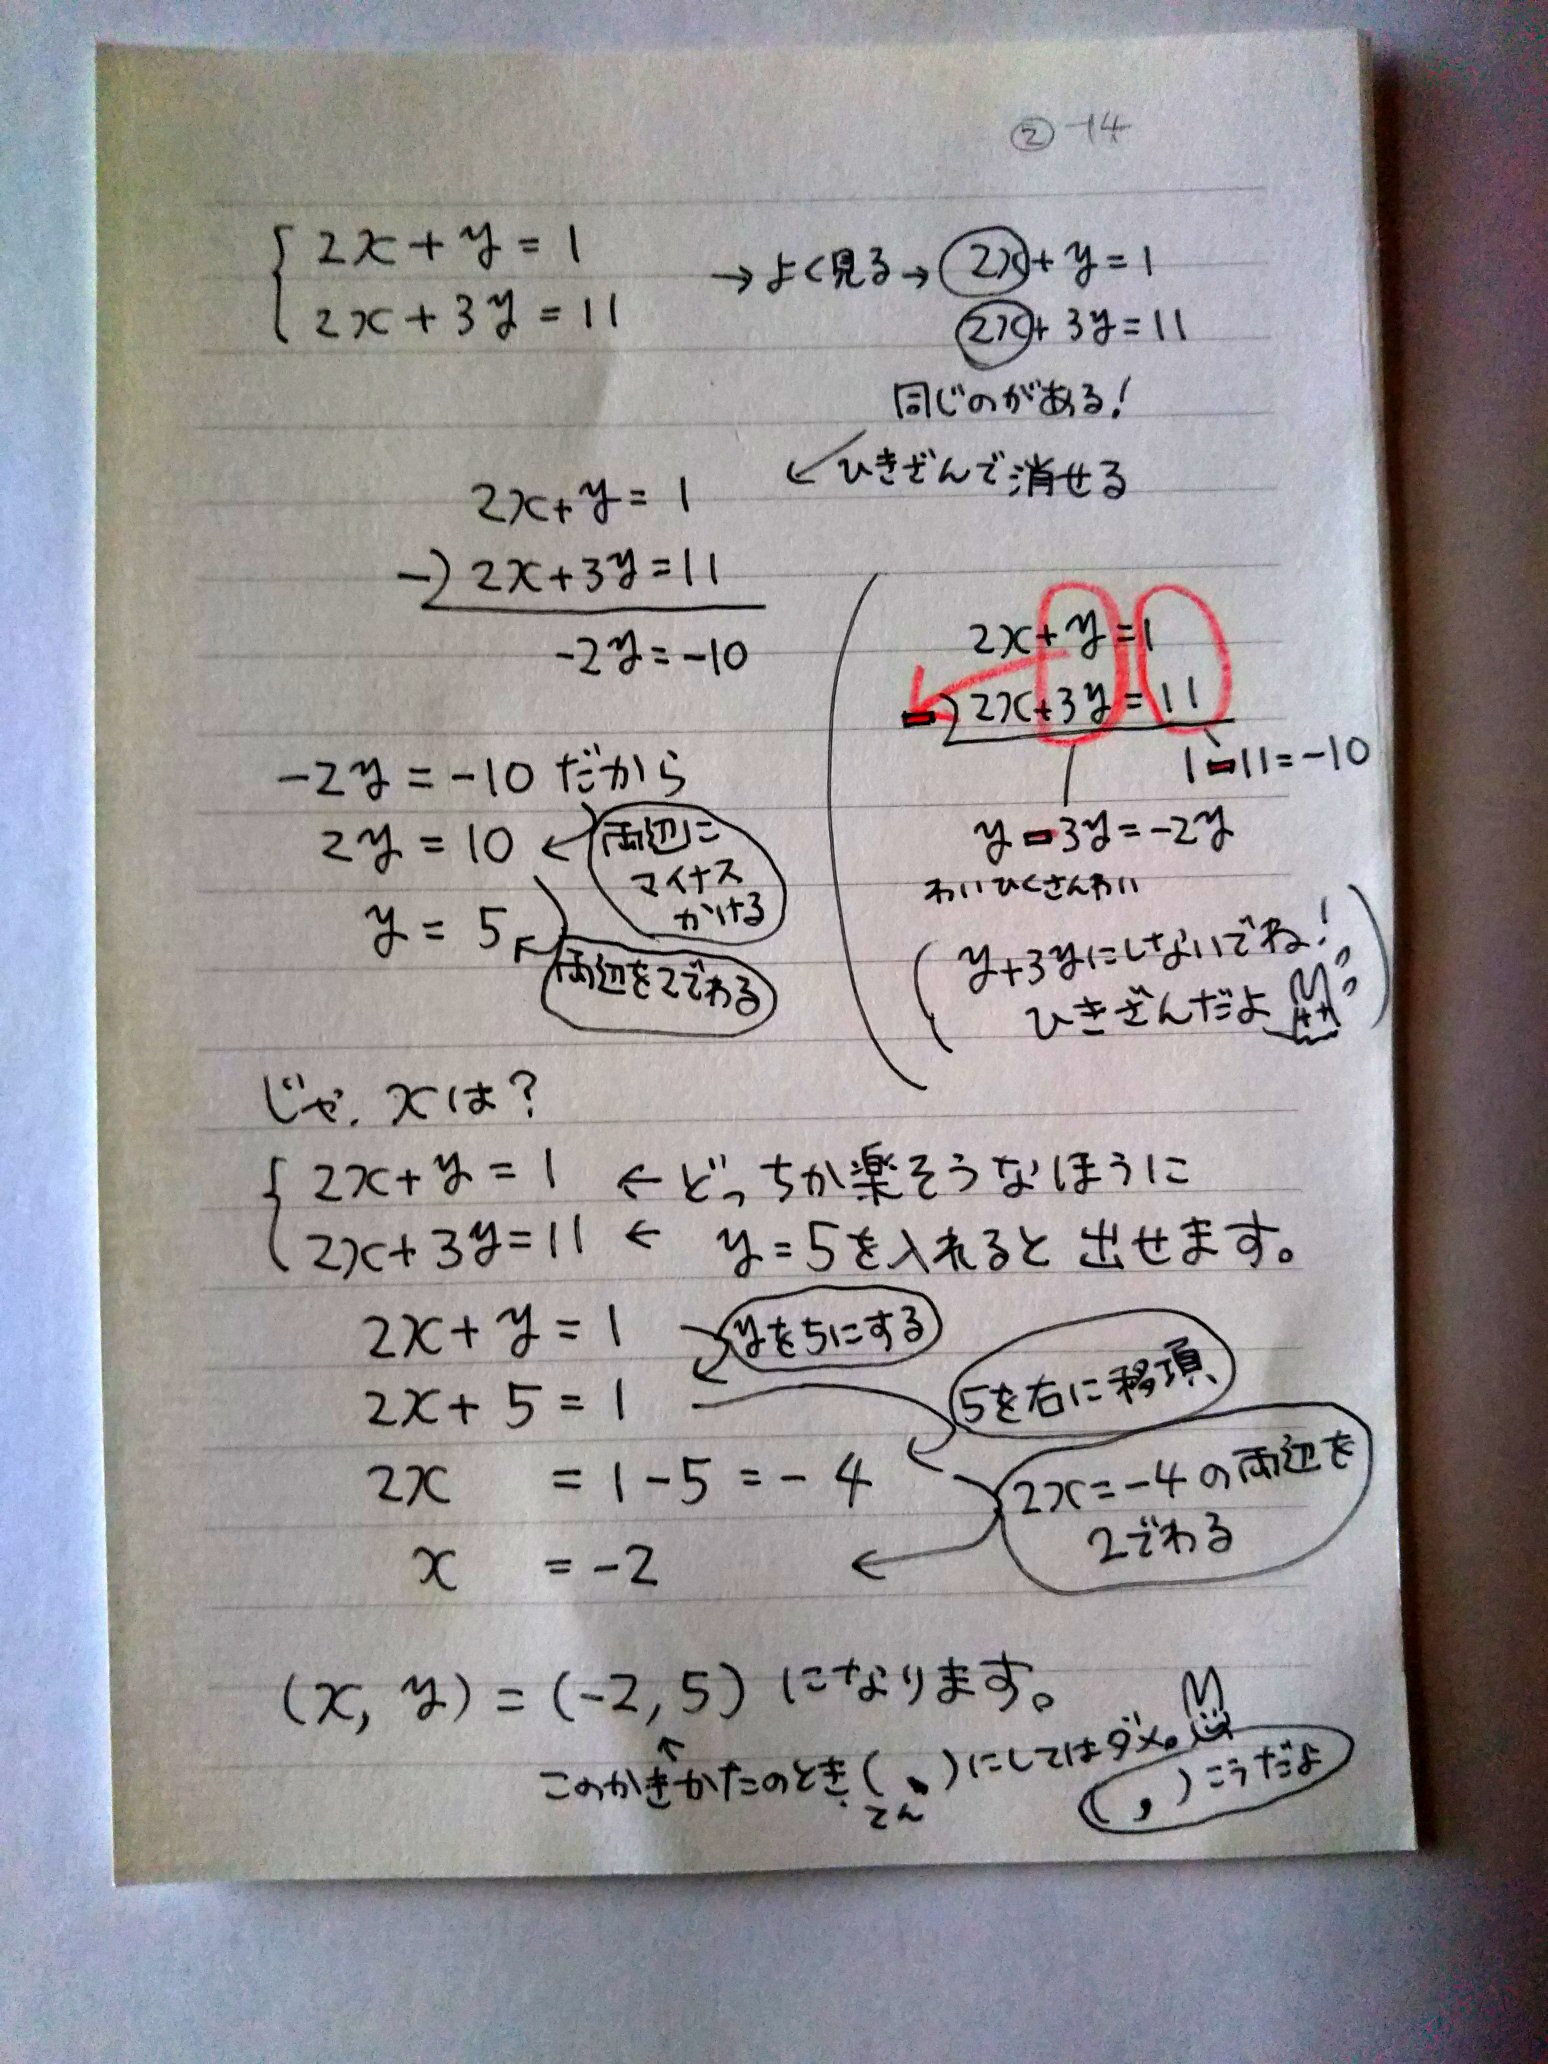 ② -14
2x + y = 1
2x + 3y = 11
→ よく見る → 2x + y = 1
2x + 3y = 11
同じのがある!
ひきざんで消せる
2x + y = 1
-) 2x + 3y = 11
-2y = -10
2x + y = 1
-) 2x + 3y = 11
1 - 11 = -10
y - 3y = -2y
わいひくさんわい
(y+3yにしないでね!
ひきざんだよ)
-2y = -10 だから
2y = 10 ← 両辺に
マイナス
かける
y = 5 ← 両辺を2でわる
じゃ、xは?
2x + y = 1 ← どっちか楽そうなほうに
2x + 3y = 11 ← y = 5を入れると出せます。
2x + y = 1 yを5にする
2x + 5 = 1 5を右に移項
2x = 1 - 5 = -4 2x = -4の両辺を
2でわる
x = -2 ←
(x, y) = (-2, 5) になります。
↑
このかきかたのとき( 、)にしてはダメ。
てん
( , )こうだよ